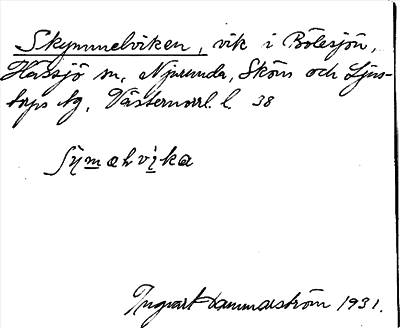 Skymmelviken, vik i Bölesjön,
Hässjö sn, Njurunda, Sköns och Ljus-
torps tg, Västernorrl. l. 38
Ingvar Hammarström 1931.